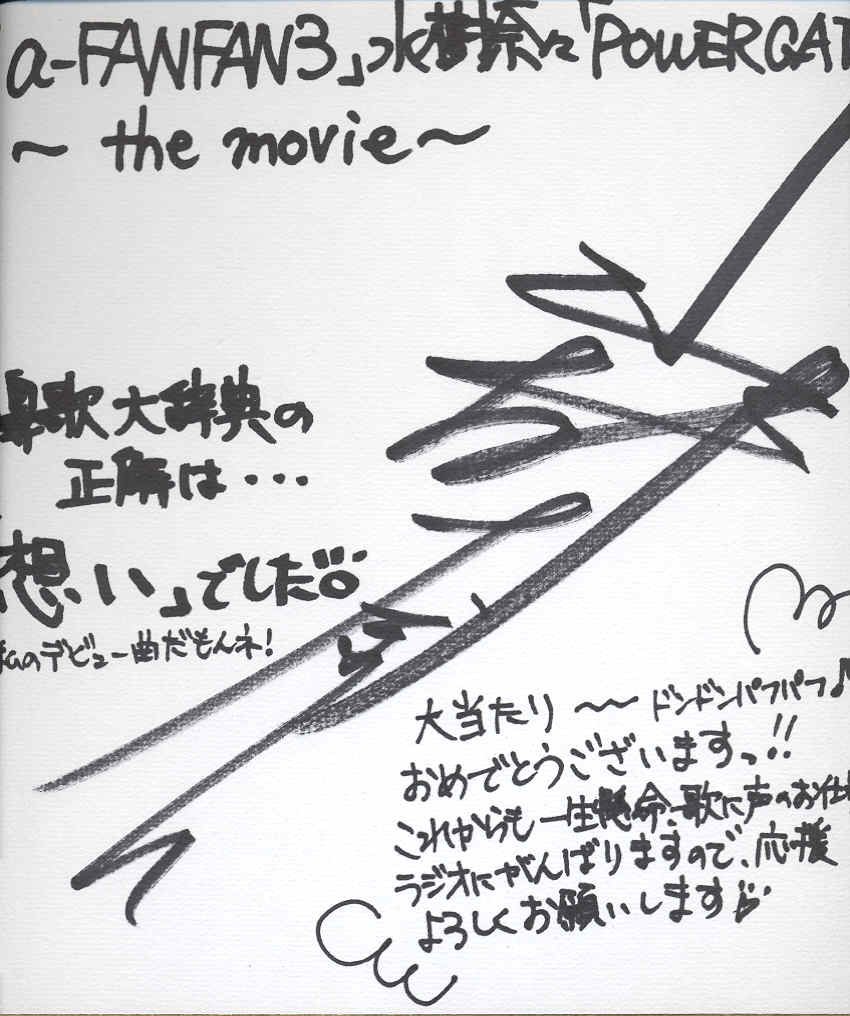 a-FANFAN3」水樹奈々「POWER GAT
～ the movie～
鼻歌大辞典の
正解は・・・
想い」でした
私のデビュー曲だもんネ！
大当たり ～～ ドンドンパフパフ♪
おめでとうございますっ!!
これからも一生懸命、歌に声のお仕
ラジオにがんばりますので、応援
よろしくお願いします